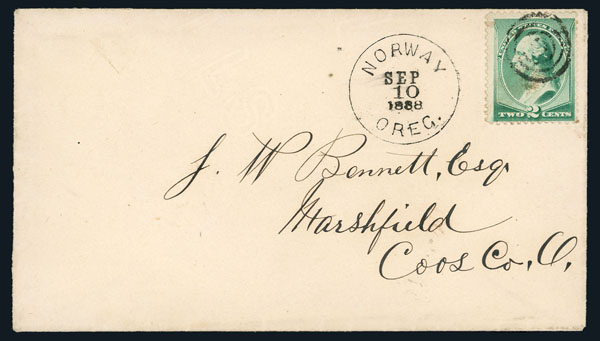 NORWAY
SEP
10
1888
OREG.
TWO 2 CENTS
J. W Bennett, Esq.
Marshfield
Coos Co., O.